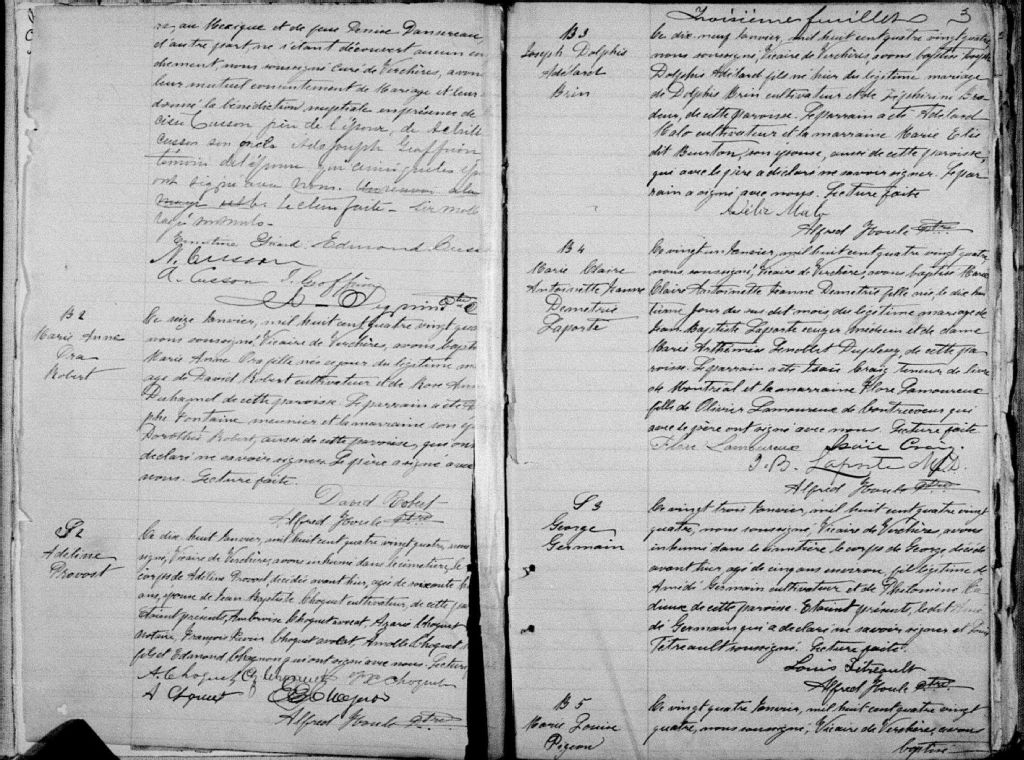 re, au Mexique et de feue Denise Dansereau,
d'autre part ne s'étant découvert aucun
chement nous soussigné curé de Verchères, avons
leur mutuel consentement de Mariage et leur
donné la bénédiction nuptiale en présence de
Cusson père de l'époux, de
Cusson son oncle Joseph Geoffrion
témoin de l'épouse qui ainsi que les
ont signé avec nous.
lecture faite
rayés nuls.
Edmond Cusson
N. Cusson
A. Cusson J. Geoffrion
Ptre
B 2
Marie Anne
Ora
Robert
Ce seize Janvier, mil huit cent quatre vingt
nous soussigné, Vicaire de Verchères, avons baptisé
Marie Anne Ora fille née ce jour du légitime
age de David Robert cultivateur et de Rose Anna
Duhamel de cette paroisse. Le parrain a été
phe Fontaine meunier et la marraine son
Dorothée Robert, aussi de cette paroisse, qui ont
déclaré ne savoir signer. Le père a signé avec
nous. Lecture faite.
David Robert
Alfred Houle Ptre
S 2
Adéline
Provost
Ce dix huit Janvier, mil huit cent quatre vingt quatre, nous
signé, Vicaire de Verchères, avons inhumé dans le cimetière, le
corps de Adéline Provost décédée avant hier, agée de soixante
ans, épouse de Jean Baptiste Choquet cultivateur, de cette
Etaient présents, Ambroise Choquet avocat, Azarie Choquet
notaire, François Xavier Choquet avocat, Choquet
fils et Edmond Chagnon qui ont signé avec nous. Lecture
A. Choquet F X Choquet
A Choquet
Alfred Houle Ptre
Troisième feuillet 3
B 3
Joseph Dolphis
Adélard
Brin
Ce dix neuf Janvier, mil huit cent quatre vingt quatre
nous soussigné, Vicaire de Verchères, avons baptisé Joseph
Dolphis Adélard fils né hier du légitime mariage
de Dolphis Brin cultivateur et de
deur, de cette paroisse. Le parrain a été Adélard
Malo cultivateur et la marraine Marie
dit Breton, son épouse, aussi de cette paroisse,
qui avec le père a déclaré ne savoir signer. Le par
rain a signé avec nous. Lecture faite
Malo
Alfred Houle Ptre
B 4
Marie Claire
Antoinette Jeanne
Demetrie
Laporte
Ce vingt un Janvier, mil huit cent quatre vingt quatre
nous soussigné, Vicaire de Verchères, avons baptisé Marie
Claire Antoinette Jeanne Demetrie fille née, le dix hui
tième jour du sus dit mois du légitime mariage de
Jean Baptiste Laporte écuyer Médecin et de dame
Marie Arthémise de cette pa
roisse. Le parrain a été Isaïe Craig teneur de livre
de Montréal et la marraine Flore Lamoureux
fille de Olivier Lamoureux de Contrecoeur qui
avec le père ont signé avec nous. Lecture faite
Flore Lamoureux Isaïe Craig
J. B. Laporte M.D.
Alfred Houle Ptre
S 3
George
Germain
Ce vingt trois Janvier, mil huit cent quatre vingt
quatre, nous soussigné, Vicaire de Verchères, avons
inhumé dans le cimetière, le corps de George décédé
avant hier agé de cinq ans environ, fils légitime de
Amédé Germain cultivateur et de Philomène Ca
dieux de cette paroisse. Etaient présents, le dit Amé
dé Germain qui a déclaré ne savoir signer et Louis
Tétreault soussigné. Lecture faite.
Louis Tétreault
Alfred Houle Ptre
B 5
Marie Louise
Pigeon
Ce vingt quatre Janvier, mil huit cent quatre vingt
quatre, nous soussigné, Vicaire de Verchères, avons
baptisé